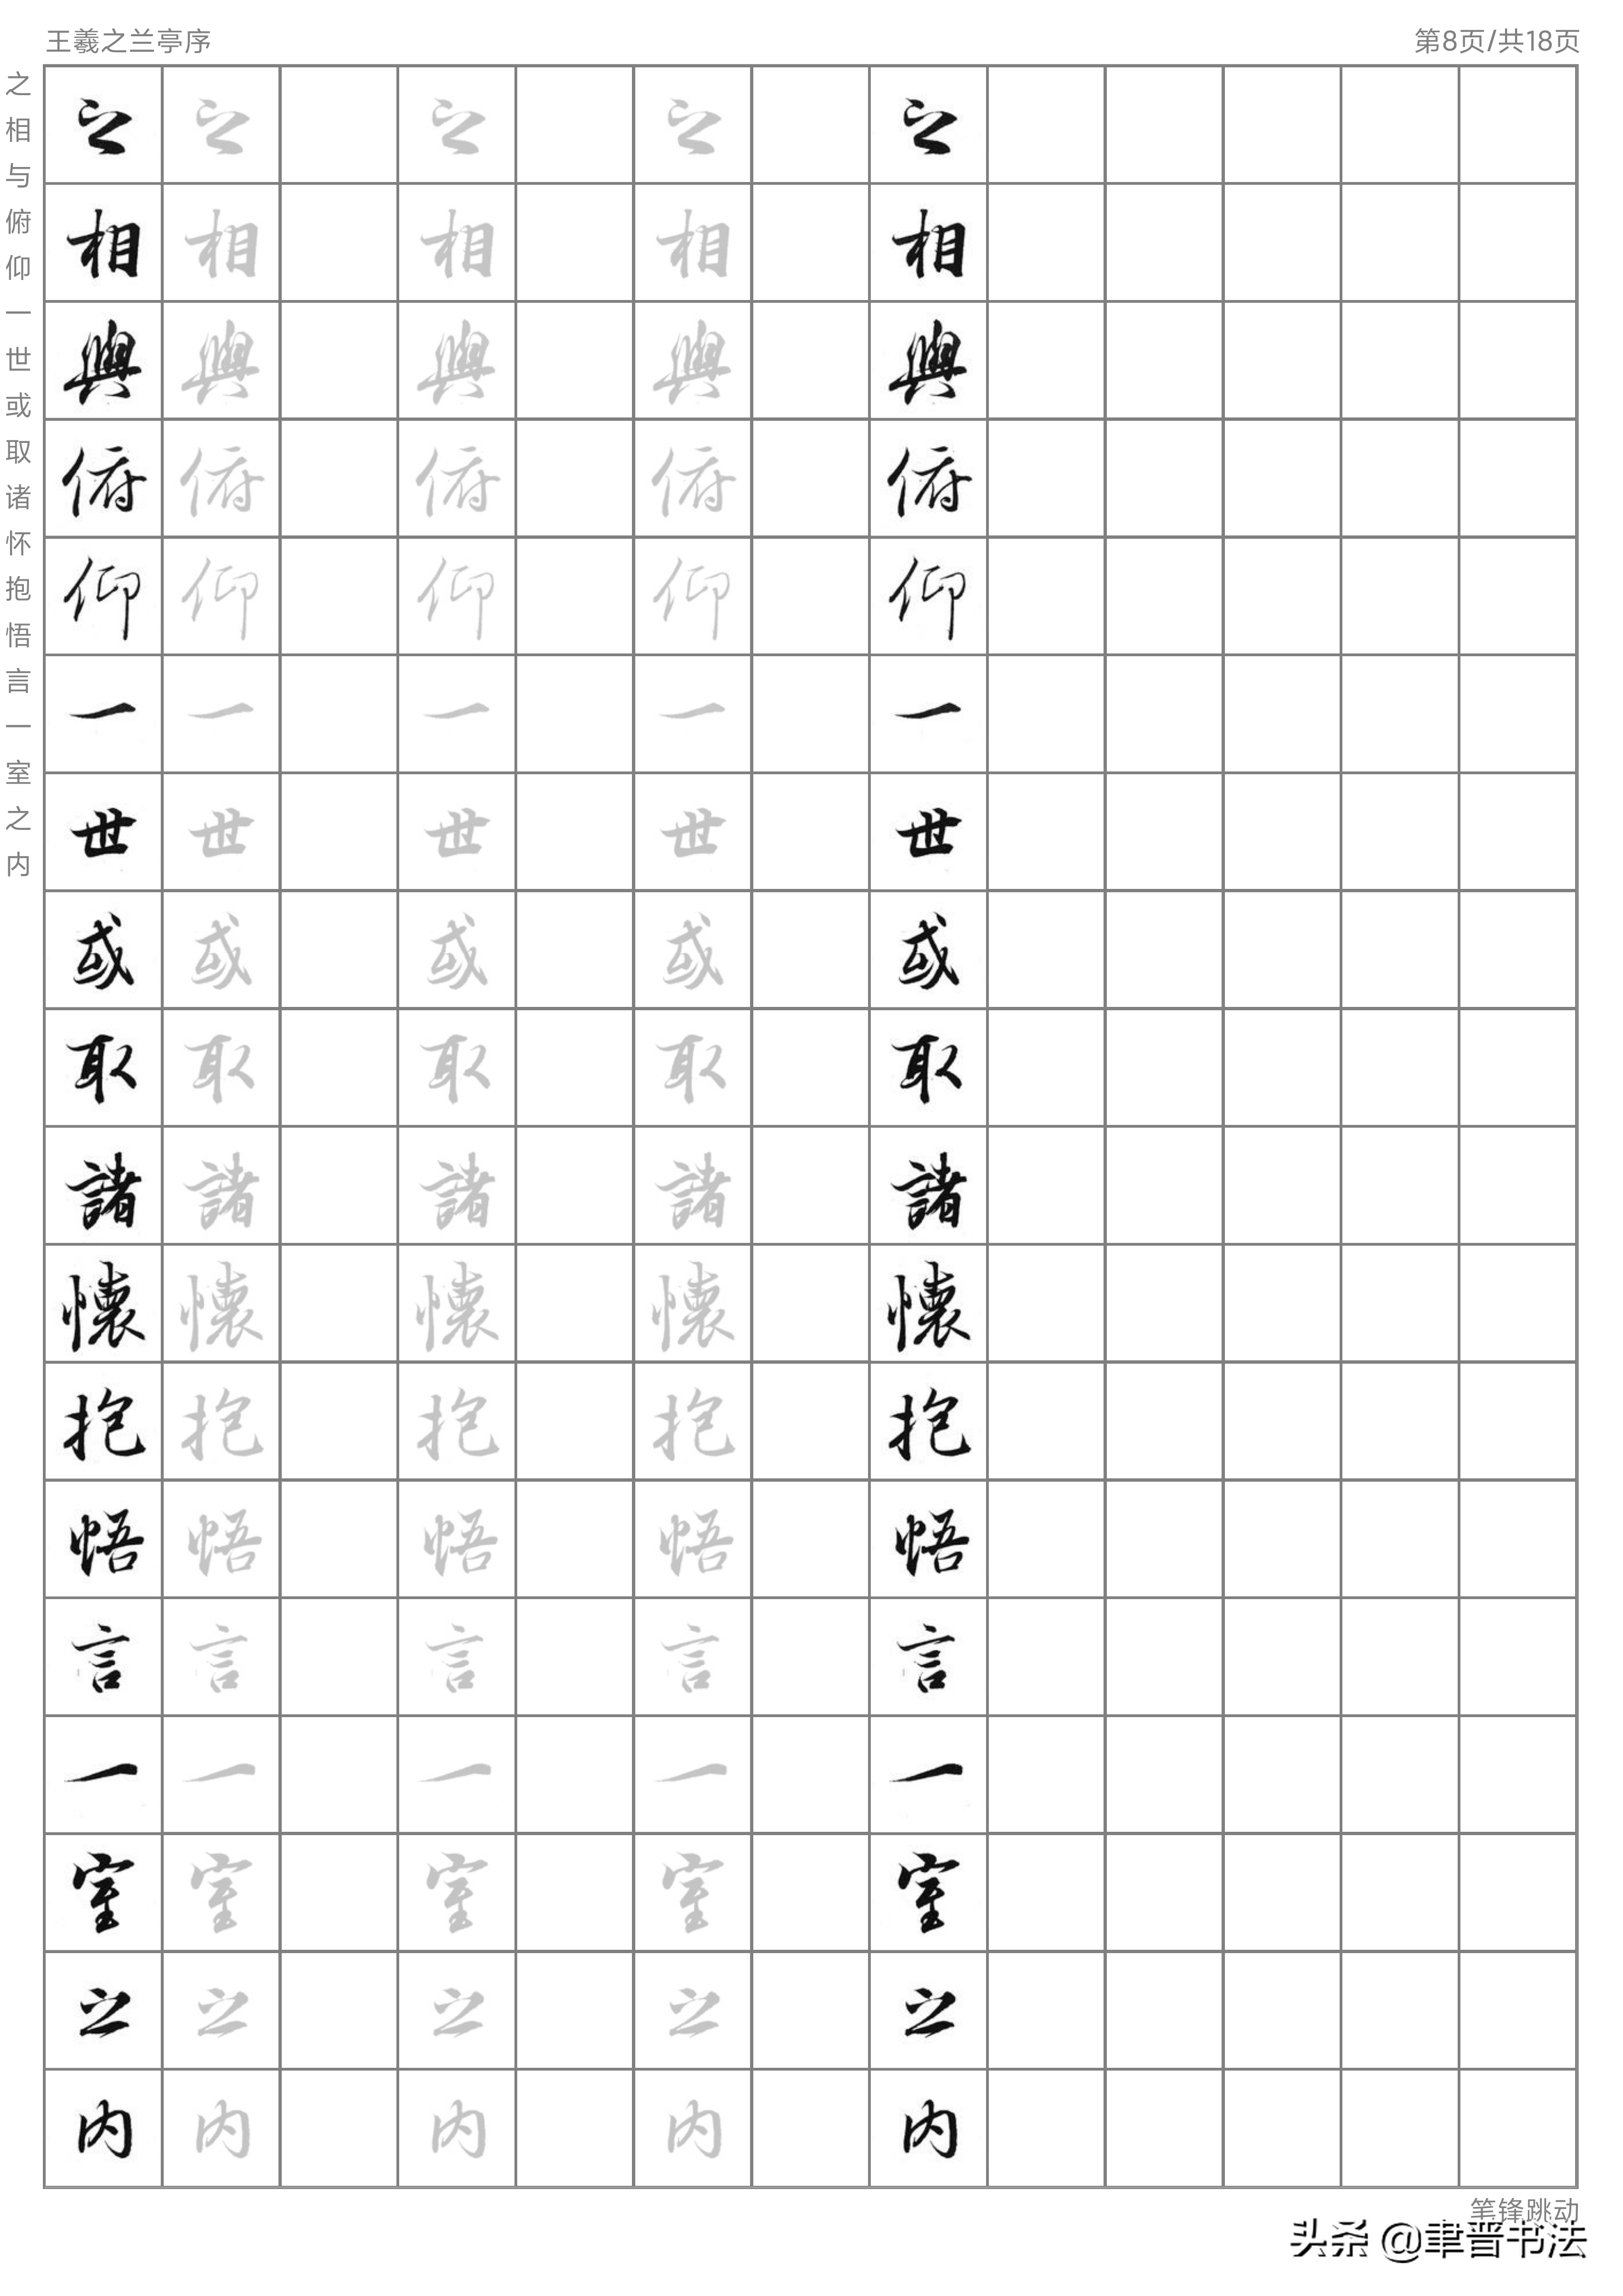 王羲之兰亭序
第8页/共18页
之相与俯仰一世或取诸怀抱悟言一室之内
之 之 之 之 之
相 相 相 相 相
與 與 與 與 與
俯 俯 俯 俯 俯
仰 仰 仰 仰 仰
一 一 一 一 一
世 世 世 世 世
或 或 或 或 或
取 取 取 取 取
諸 諸 諸 諸 諸
懷 懷 懷 懷 懷
抱 抱 抱 抱 抱
悟 悟 悟 悟 悟
言 言 言 言 言
一 一 一 一 一
室 室 室 室 室
之 之 之 之 之
内 内 内 内 内
笔锋跳动
头条 @聿晋书法